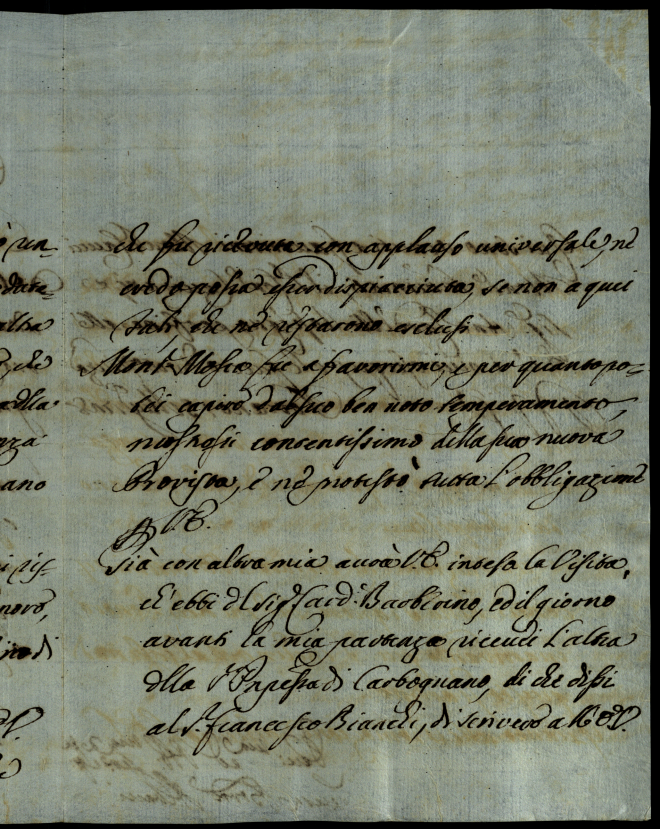 che fu ricevuta con applauso universale, nè
credo possa esser dispiaciuta, se non a quei
tali, che nè restarono esclusi
Mons.r Mosca fù a favorirmi, e per quanto po-
tei capire dal suo ben noto temperamento,
mostrossi contentissimo della sua nuova
Provista, e nè protestò tutta l'obbligazione
à V.E.
Già con altra mia avrà V.E. intesa la Visita,
ch'ebbi dl Sig.r Card. Barberino, ed il giorno
avanti la mia partenza ricevei l'altra
dlla S.ra Pnpessa di Carbognano, di che dissi
al S.r Francesco Bianchi, di scrivere a
ò un-
altra
che
adlla
nza
ano